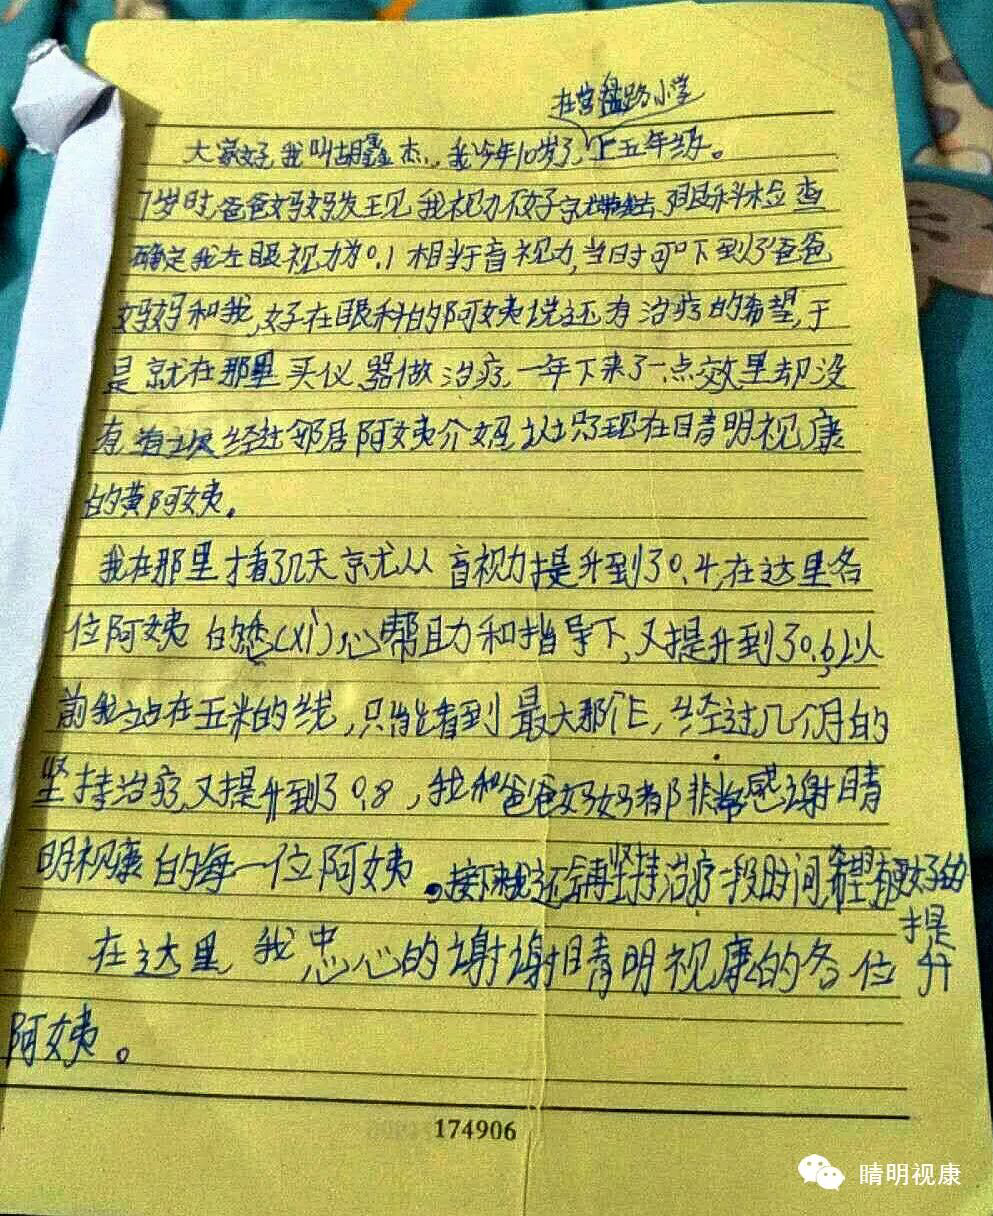 在营盘路小学
大家好,我叫胡鑫杰,我今年10岁了,上五年级。
7岁时,爸爸妈妈发现我视力不好就带我去眼科检查
确定我左眼视力为0.1相当于盲视力,当时可吓到了爸爸
妈妈和我,好在眼科的阿姨说还有治疗的希望,于
是就在那里买仪器做治疗,一年下来了一点效果却没
有经过邻居阿姨介现在晴明视康
的黄阿姨。
我在那里才看了几天就从盲视力提升到了0.4,在这里各
位阿姨的悉(xi)心帮助和指导下,又提升到了0.6,以
前我站在五米的线,只能看到最大那个E,经过几个月的
坚持治疗,又提升到了0.8,我和爸爸妈妈都非常感谢晴
明视康的每一位阿姨。接下来我还会再坚持治疗一段时间,希望有更好的
提升
在这里,我忠心的谢谢晴明视康的各位
阿姨。
174906
晴明视康